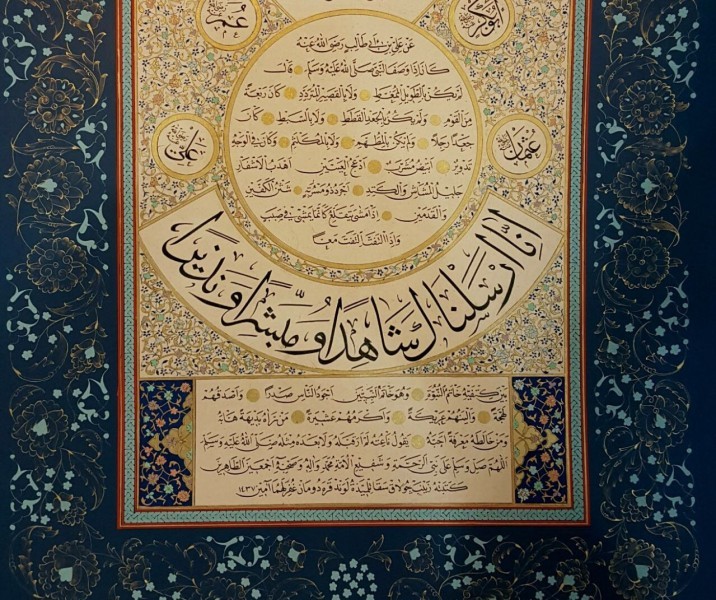 أبو بكر
عمر
عن علي بن ابي طالب رضي الله عنه
كان اذا وصف النبي صلى الله عليه وسلم قال
لم يكن بالطويل الممغط ولا بالقصير المتردد كان ربعة
من القوم ولم يكن بالجعد القطط ولا بالسبط كان
جعدا رجلا ولم يكن بالمطهم ولا بالمكلثم وكان في الوجه
تدوير ابيض مشرب ادعج العينين اهدب الاشفار
جليل المشاش والكتد اجرد ذو مسربة شثن الكفين
والقدمين اذا مشى يتقلع كانما يمشي في صبب
واذا التفت التفت معا
عثمان
علي
انا ارسلناك شاهدا ومبشرا ونذيرا
بين كتفيه خاتم النبوة وهو خاتم النبيين اجود الناس صدرا واصدقهم
لهجة والينهم عريكة واكرمهم عشيرة من رآه بديهة هابه
ومن خالطه معرفة احبه يقول ناعته لم ار قبله ولا بعده مثله صلى الله عليه وسلم
اللهم صل وسلم على نبي الرحمة وشفيع الامة محمد واله وصحبه اجمعين الطاهرين
كتبته زينب غفر لهما آمين ١٤٣٧